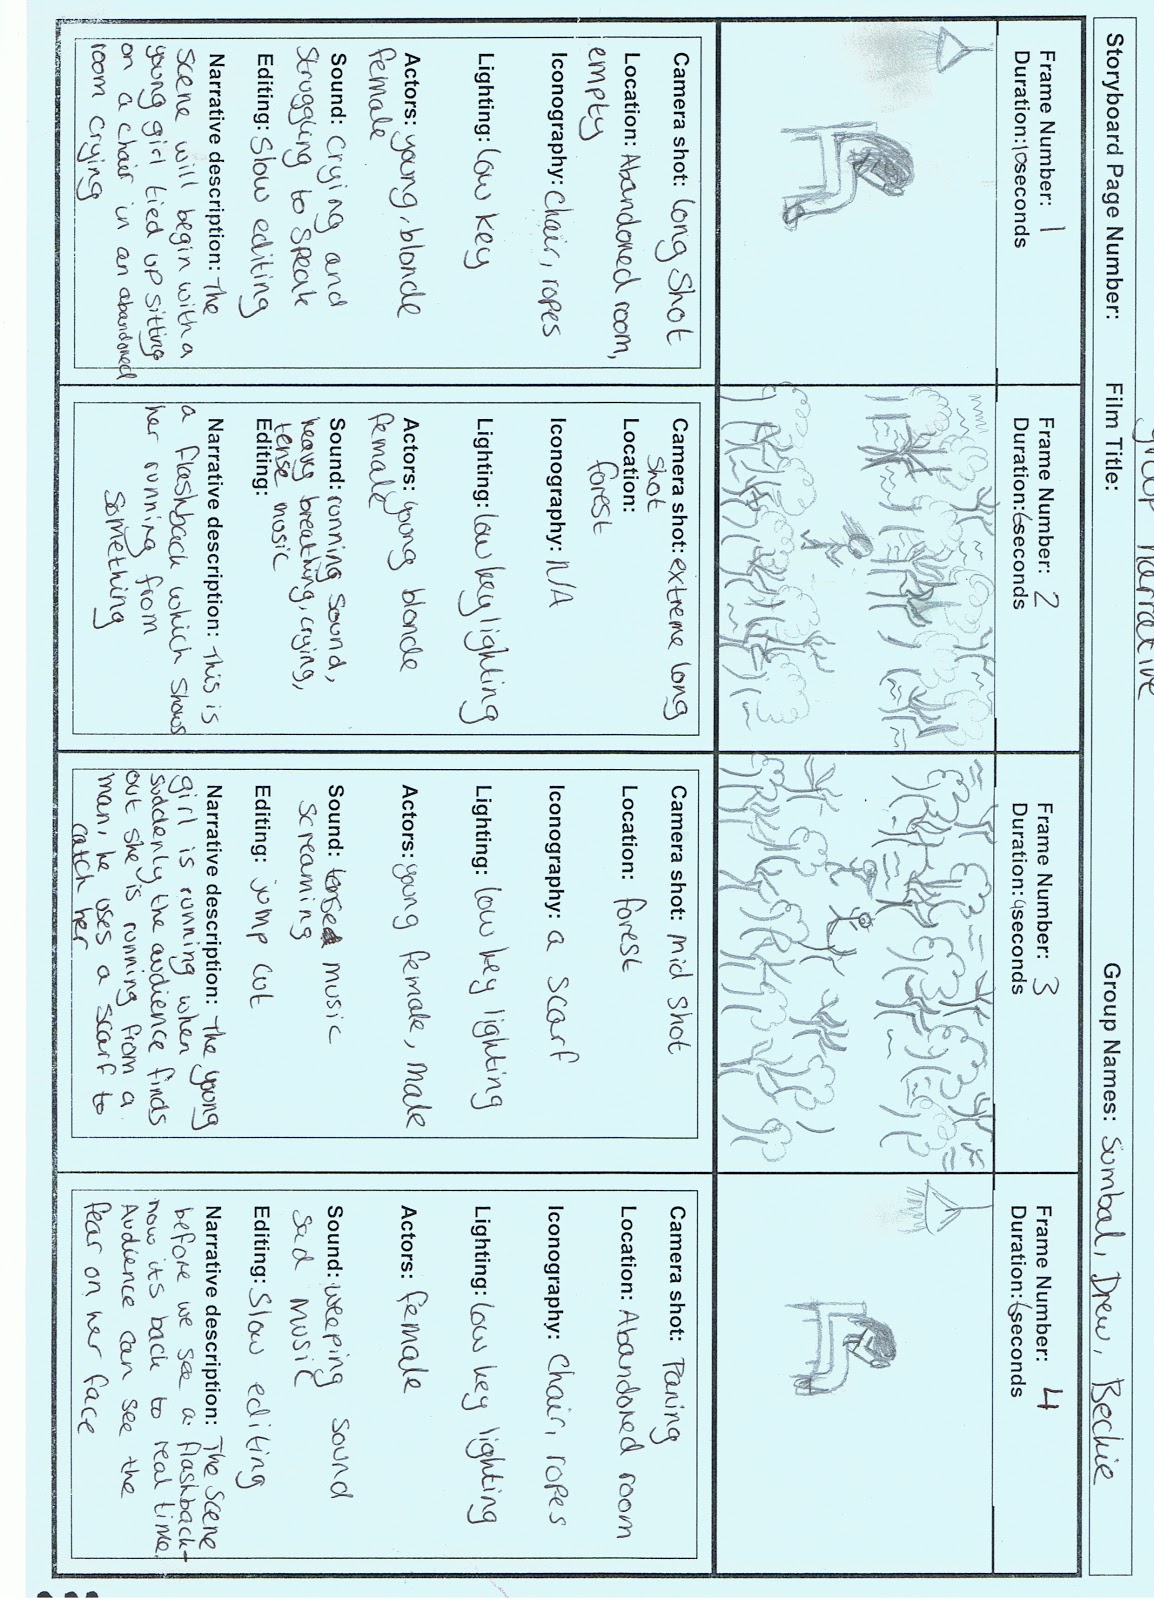 group narrative
Storyboard Page Number: Film Title: Group Names: Sumbal, Drew, Bechie
Frame Number: 1
Duration: 10seconds
Camera shot: Long Shot
Location: Abandoned room,
empty
Iconography: Chair, ropes
Lighting: Low key
Actors: young, blonde
female
Sound: Crying and
Struggling to Speak
Editing: Slow editing
Narrative description: The
scene will begin with a
young girl tied up sitting
on a chair in an abandoned
room crying
Frame Number: 2
Duration: 6seconds
Camera shot: extreme long
shot
Location:
forest
Iconography: N/A
Lighting: Low key lighting
Actors: young blonde
female
Sound: running sound,
heavy breathing, crying,
tense music
Editing:
Narrative description: This is
a flashback which shows
her running from
something
Frame Number: 3
Duration: 9seconds
Camera shot: Mid shot
Location: forest
Iconography: a scarf
Lighting: Low key lighting
Actors: young female, male
Sound: tensed music
screaming
Editing: jump cut
Narrative description: The young
girl is running when
suddenly the audience finds
out she is running from a
man, he uses a scarf to
catch her
Frame Number: 4
Duration: 6seconds
Camera shot: Paning
Location: Abandoned room
Iconography: Chair, ropes
Lighting: Low key lighting
Actors: female
Sound: weeping sound
sad music
Editing: Slow editing
Narrative description: The scene
before we see a flashback -
now its back to real time.
Audience can see the
fear on her face